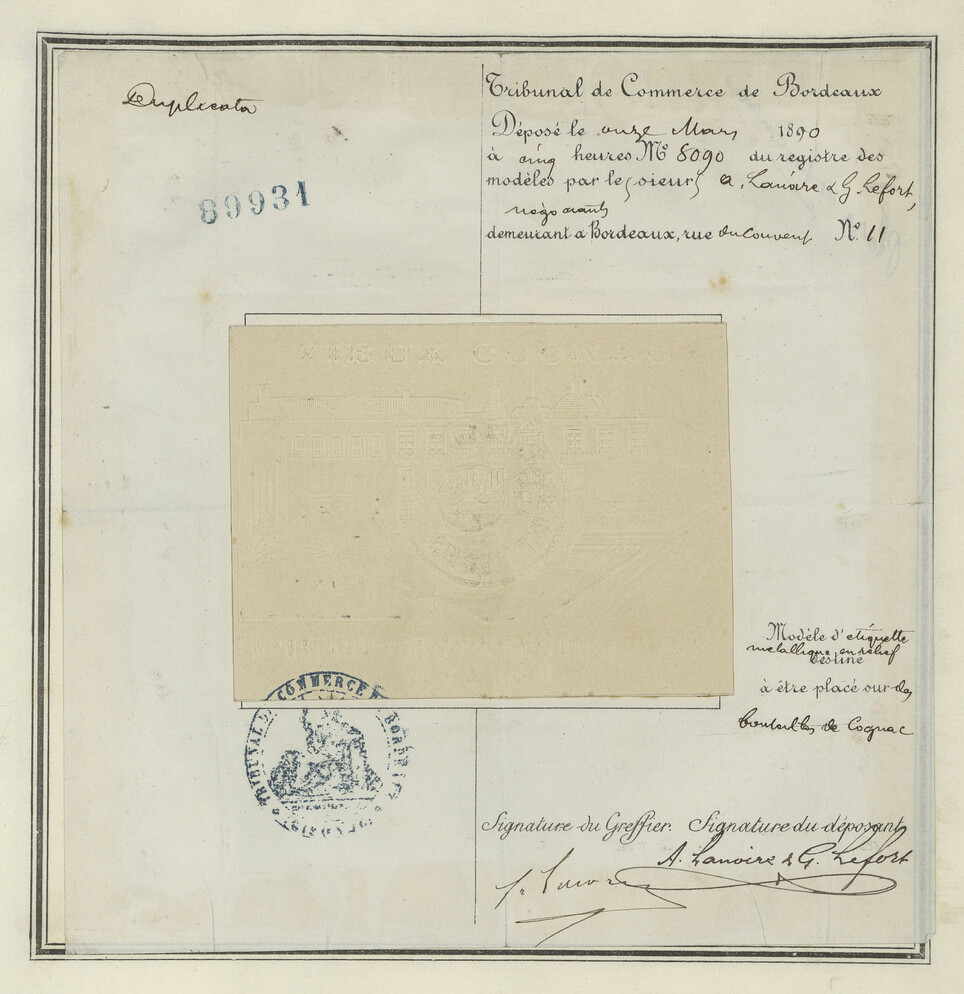 Duplicata
89931
Tribunal de Commerce de Bordeaux
Déposé le onze Mars 1890
à cinq heures No 8090 du registre des
modèles par le (sieurs) A. Lanoire & G. Lefort,
négociants
demeurant a Bordeaux, rue du Couvent No. 11
VIEUX COGNAC
Modèle d'étiquette
metallique en relief
destiné
à être placé sur des
bouteilles de Cognac
TRIBUNAL DE COMMERCE DE BORDEAUX
Signature du Greffier. Signature du déposant
A. Lanoire & G. Lefort